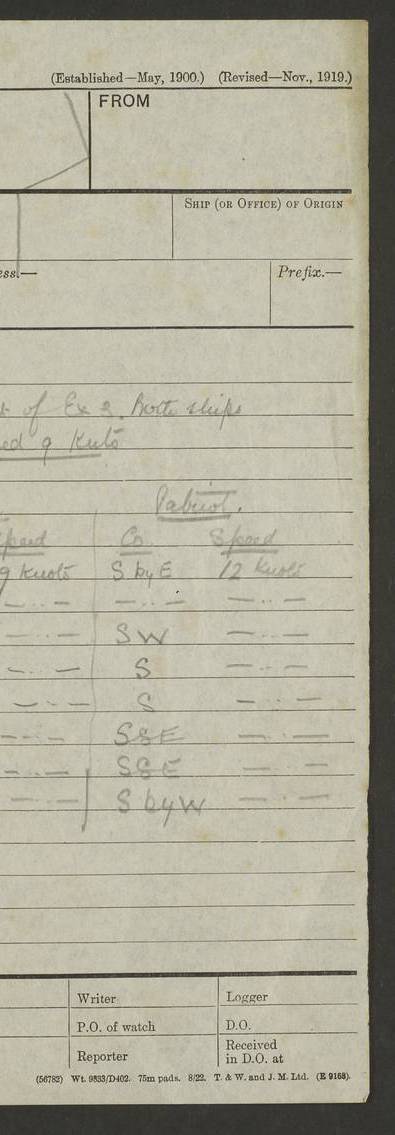 (Established—May, 1900.) (Revised—Nov., 1919.)
FROM
SHIP (OR OFFICE) OF ORIGIN
ess.— Prefix.—
of Ex 2. Both ships
ed 9 Knts
Patriot.
Speed Co Speed
9 Knots S by E 12 Knots
— ·· — — ·· — — ·· —
— ·· — SW — ·· —
— ·· — S — ·· —
— ·· — S — ·· —
— ·· — SSE — ·· —
— ·· — SSE — ·· —
— ·· — S by W — ·· —
Writer Logger
P.O. of watch D.O.
Reporter Received in D.O. at
(56782) Wt. 9833/D402. 75m pads. 8/22. T. & W. and J. M. Ltd. (E 9168).